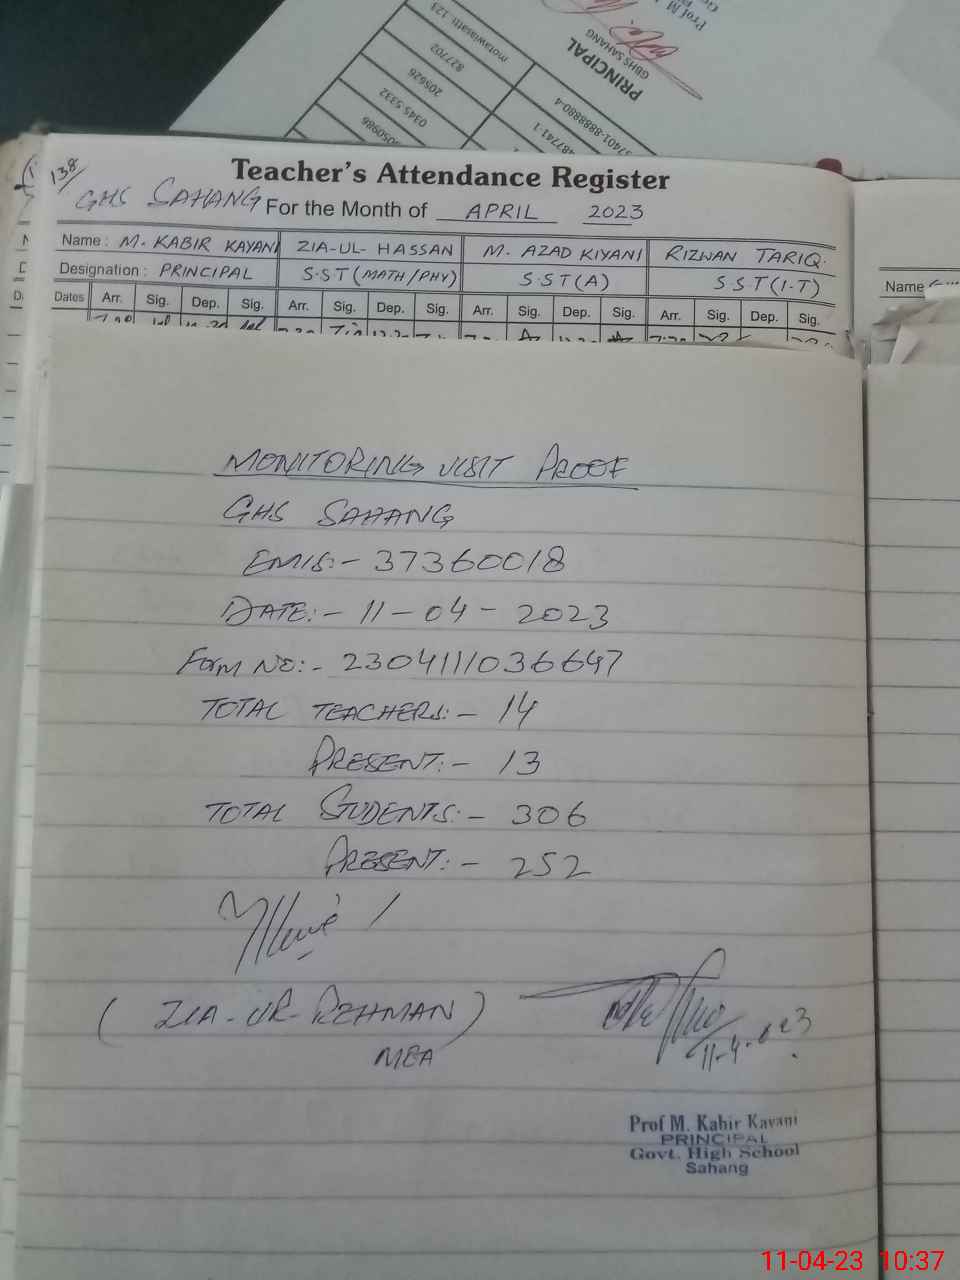 motawasatti.123
827702
205626
0345 5332
050986
37401-8888880-4
487741-1
Prof M
PRINCIPAL
GBHS SAHANG
138/
Teacher's Attendance Register
GHS SAHANG For the Month of APRIL 2023
Name: M. KABIR KAYANI ZIA-UL-HASSAN M. AZAD KIYANI RIZWAN TARIQ.
Designation: PRINCIPAL S.S.T (MATH/PHY) S.S.T(A) S.S.T(I.T)
Dates Arr. Sig. Dep. Sig. Arr. Sig. Dep. Sig. Arr. Sig. Dep. Sig. Arr. Sig. Dep. Sig.
Name
MONITORING VISIT PROOF
GHS SAHANG
EMIS:- 37360018
DATE:- 11-04-2023
Form NO:- 2304111036647
TOTAL TEACHERS:- 14
PRESENT:- 13
TOTAL STUDENTS:- 306
PRESENT:- 252
(ZIA-UR-REHMAN)
MEA
11-4-023
Prof M. Kabir Kayani
PRINCIPAL
Govt. High School
Sahang
11-04-23 10:37